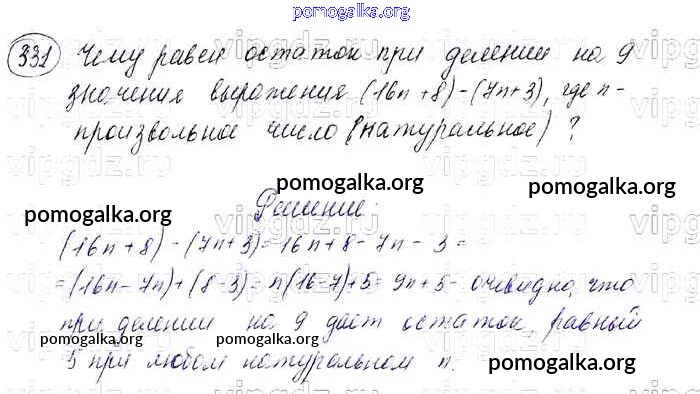 pomogalka.org
331 Чему равен остаток при делении на 9
значения выражения (16n+8)-(7n+3), где n-
произвольное число (натуральное)?
pomogalka.org
pomogalka.org
pomogalka.org
Решение:
(16n+8)-(7n+3)=16n+8-7n-3=
=(16n-7n)+(8-3)=n(16-7)+5=9n+5- очевидно, что
при делении на 9 даёт остаток, равный
pomogalka.org
pomogalka.org
5 при любом натуральном n.
pomogalka.org